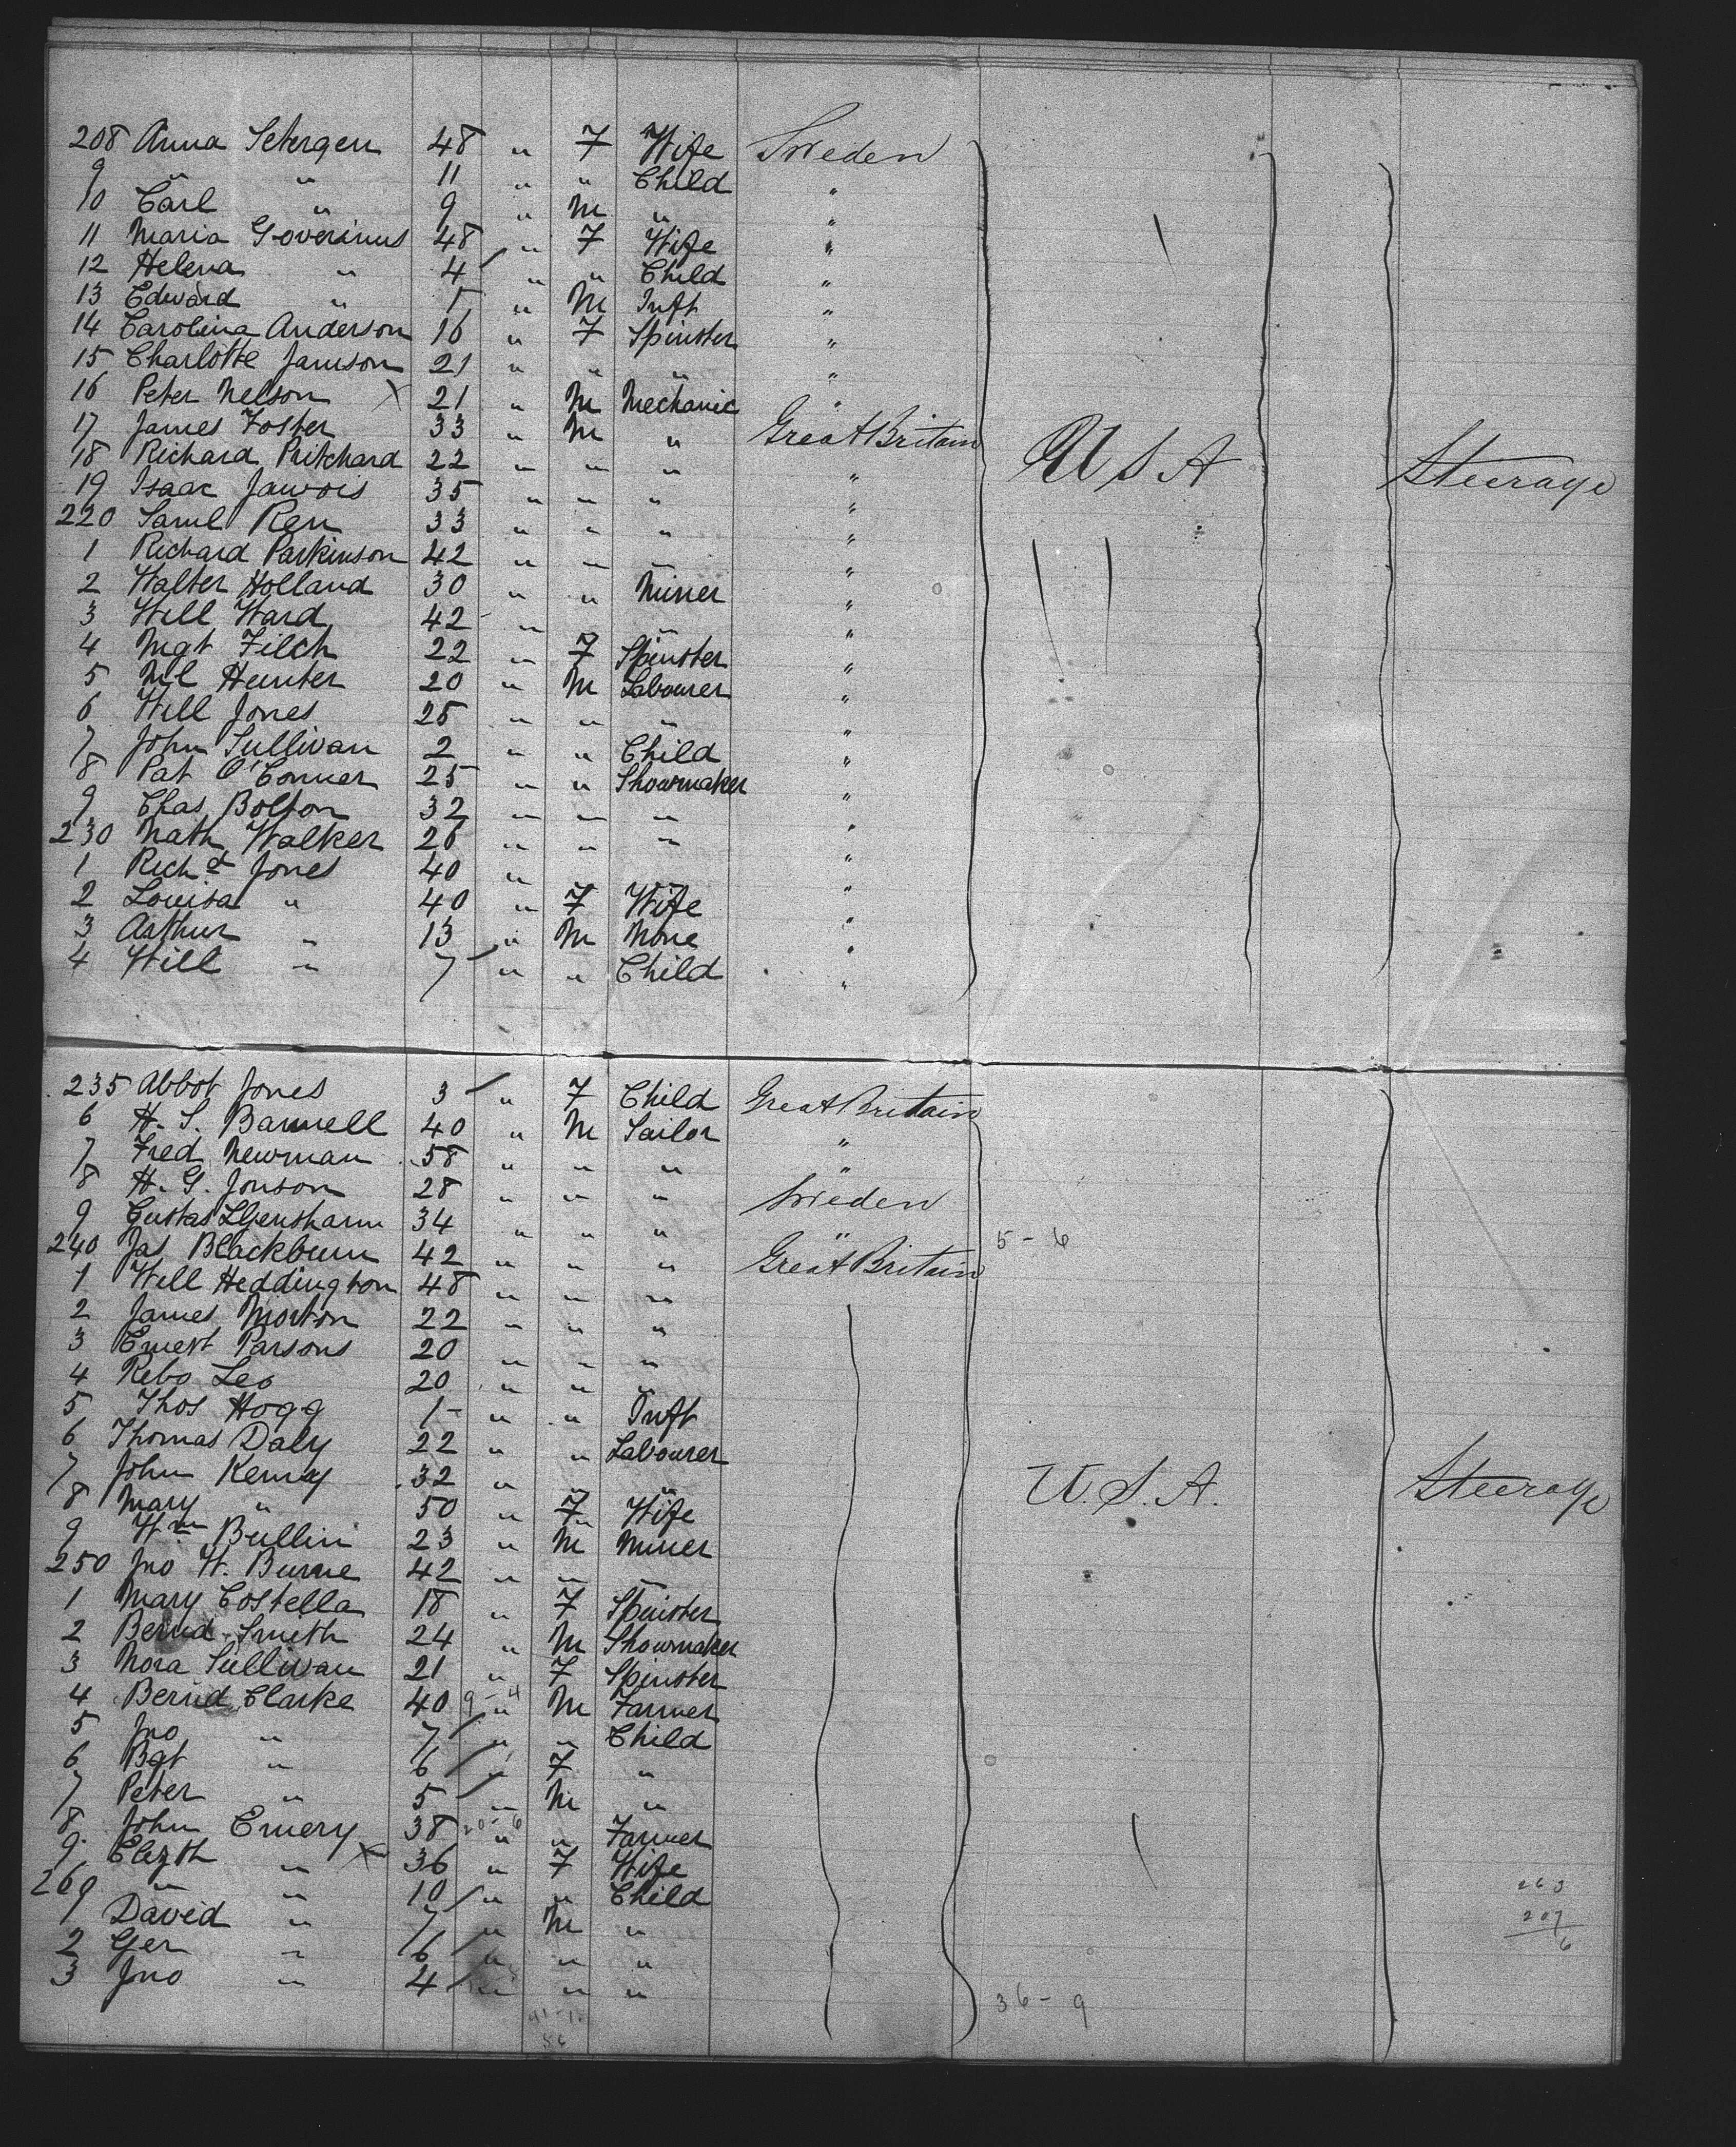 208 Anna Setergen 48 " F Wife Sweden
9 " " 11 " " Child "
10 Carl " 9 " M " "
11 Maria Goverinus 48 " F Wife "
12 Helena " 4 " " Child "
13 Edward " 1 " M Inft "
14 Carolina Anderson 16 " F Spinster "
15 Charlotte Jamson 21 " " " "
16 Peter Nelson X 21 " M Mechanic "
17 James Foster 33 " M " Great Britain USA Steerage
18 Richard Pritchard 22 " " " "
19 Isaac 35 " " " "
220 Saml Ren 33 " " " "
1 Richard Parkinson 42 " " " "
2 Walter Holland 30 " " Miner "
3 Will Ward 42 " " "
4 Mgt Filch 22 " F Spinster "
5 Ml Hunter 20 " M Labourer "
6 Will Jones 25 " " " "
7 John Sullivan 2 " " Child "
8 Pat O'Conner 25 " " Showmaker "
9 Chas Bolton 32 " " " "
230 Nath Walker 26 " " " "
1 Richd Jones 40 " "
2 Louisa " 40 " F Wife "
3 Arthur " 13 " M None "
4 Will " 7 " " Child "
235 Abbot Jones 3 " F Child Great Britain
6 H. S. Barwell 40 " M Sailor "
7 Fred Newman 58 " " " "
8 H. G. Jonson 28 " " " Sweden
9 Gustas 34 " " " "
240 Jas Blackburn 42 " " " Great Britain 5-6
1 Will Heddington 48 " " "
2 James Morton 22 " " "
3 Ernest Parsons 20 " " "
4 Rebo Leo 20 " " "
5 Thos Hogg 1 " " Inft
6 Thomas Daly 22 " " Labourer
7 John Kenny 32 " " " U.S.A. Steerage
8 Mary " 50 " F Wife
9 Wm Bullin 23 " M Miner
250 Jno W. Burne 42 " " "
1 Mary Costella 18 " F Spinster
2 Bernd Smith 24 " M Showmaker
3 Nora Sullivan 21 " F Spinster
4 Bernd Clarke 40 9-4 " M Farmer
5 Jno " 7 " " Child
6 Bgt " 6 " F "
7 Peter " 5 " M "
8 John Emery 38 20-6 " " Farmer
9 Elizth " X 36 " F Wife
260 " " 10 " " Child
1 David " 7 " M "
2 Ger " 6 " " "
3 Jno " 4 " " "
263
207
6
36-9
56